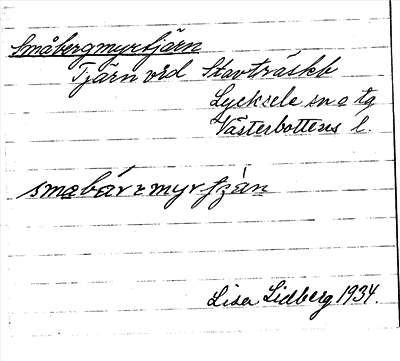 Småbergmyrtjärn
Tjärn vid Stavträskb
Lycksele sn o tg
Västerbottens l.
smabàrzmyrtjàn
Lisa Lidberg 1934.